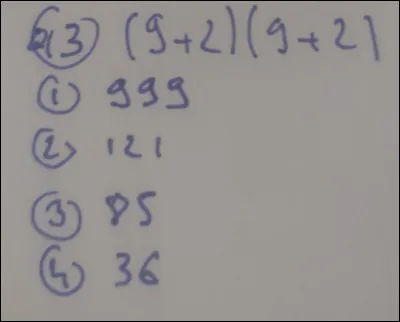 Q13) (9+2)(9+2)
① 999
② 121
③ 85
④ 36